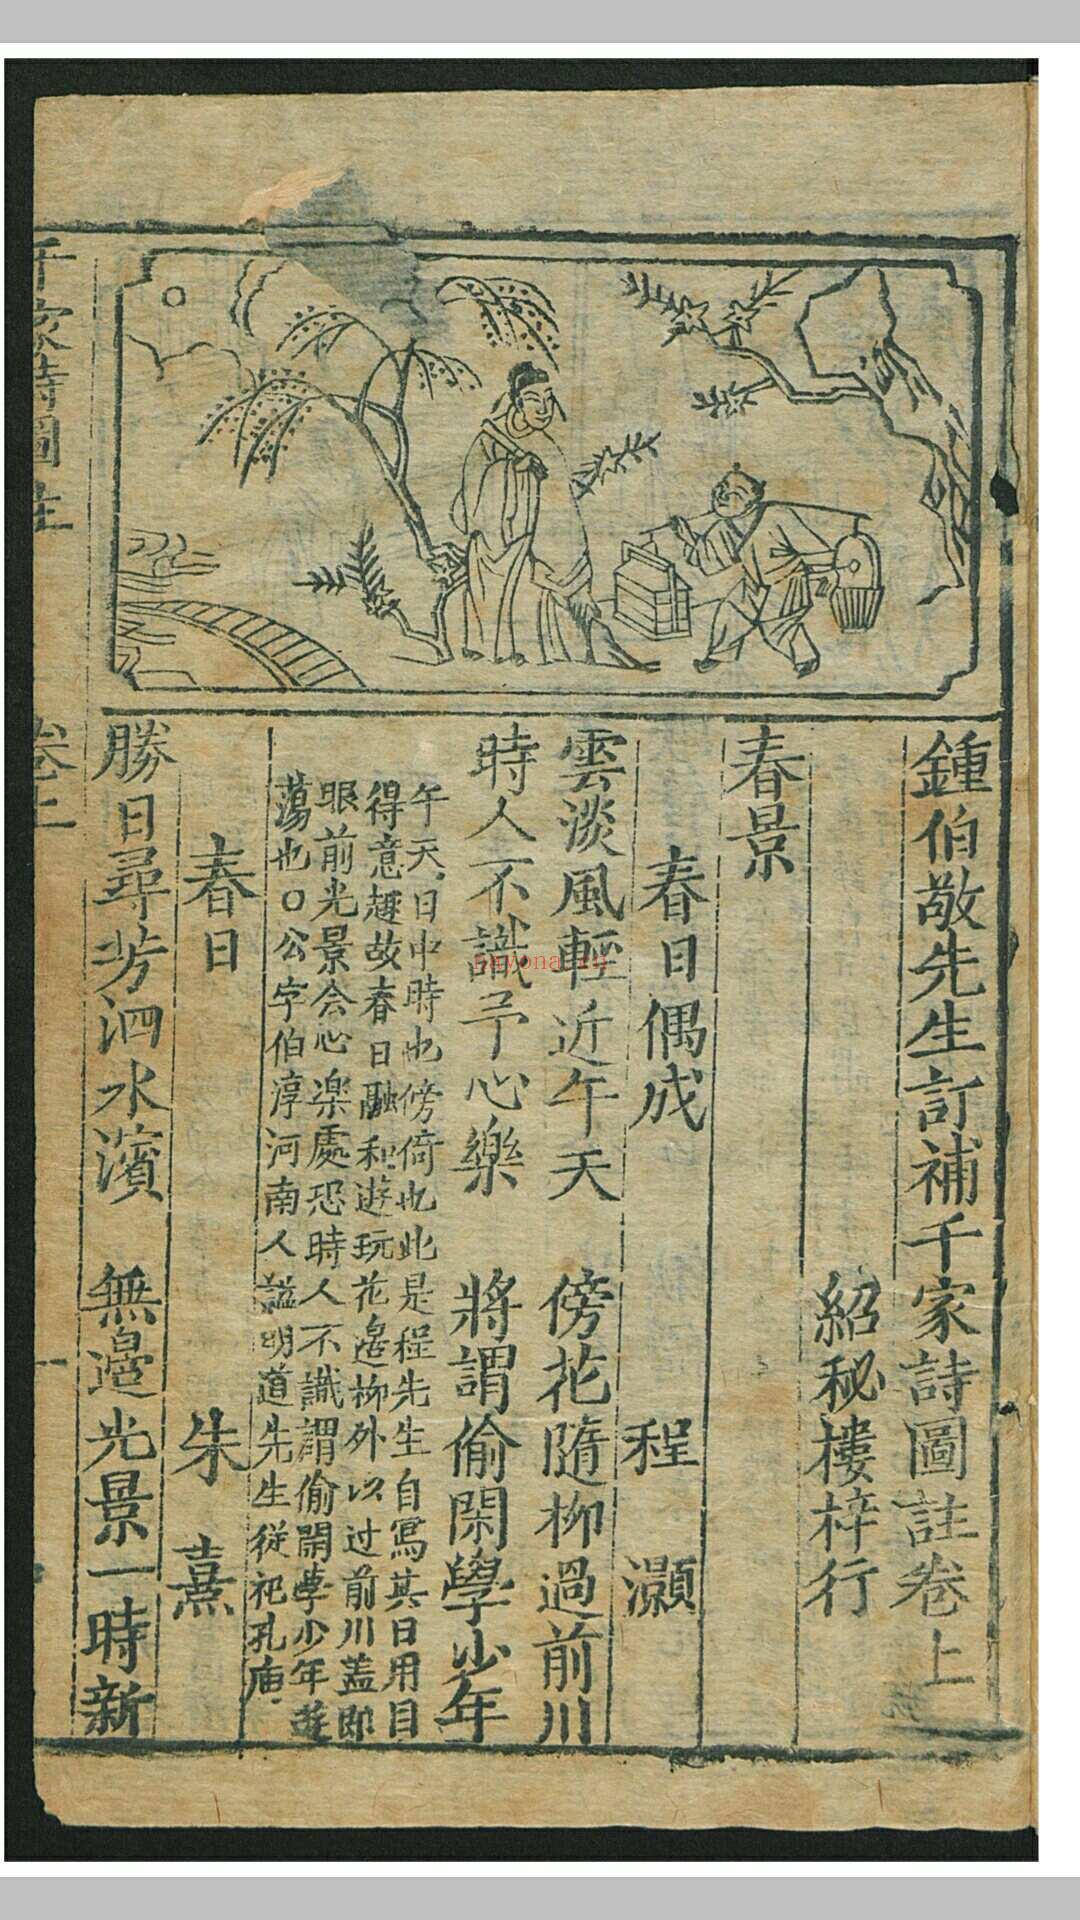 鍾伯敬先生訂補千家詩圖註卷上
紹秘樓梓行
春景
春日偶成 程 灝
雲淡風輕近午天 傍花隨柳過前川
時人不識予心樂 將謂偷閑學少年
午天日中時也傍倚也此是程先生自寫其日用目
得意趣故春日融和遊玩花邉柳外以过前川蓋即
眼前光景会心楽處恐時人不識謂偷閑學少年遊
蕩也○公字伯淳河南人謚明道先生従祀孔庙
春日 朱 熹
勝日尋芳泗水濱 無邉光景一時新
千家詩圖註 卷上 一
hayona.cn